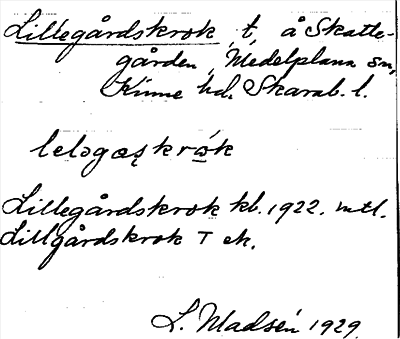 Lillegårdskrok, t, å Skatte-
gården, Medelplana sn,
Kinne hd. Skarab. l.
leləgæʂkrωk
Lillegårdskrok kb. 1922. mtl.
Lillgårdskrok T ek.
L. Madsén 1929.